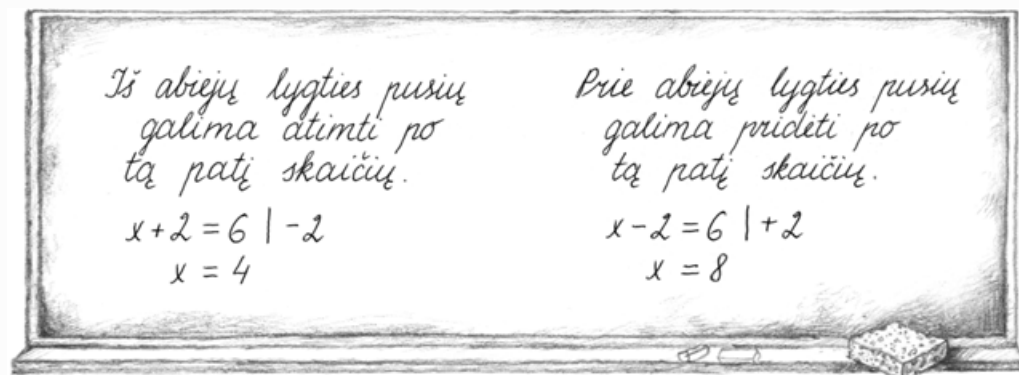 Iš abiejų lygties pusių
galima atimti po
tą patį skaičių.
x + 2 = 6 | - 2
x = 4
Prie abiejų lygties pusių
galima pridėti po
tą patį skaičių.
x - 2 = 6 | + 2
x = 8